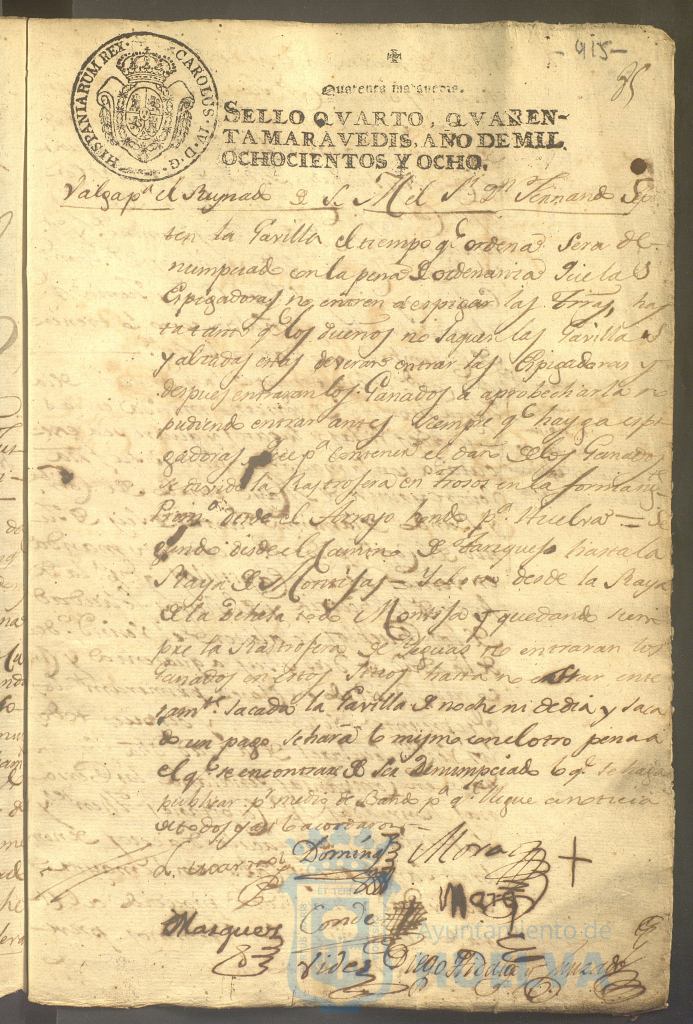 -415-
35
HISPANIARUM REX. CAROLUS IV. D. G.
Quarenta maravedis.
SELLO QVARTO, QVAREN-
TAMARAVEDIS, AÑO DE MIL
OCHOCIENTOS Y OCHO.
Valga pa el Reynado D S. M el Sr Dn Fernando
ten la Gavilla el tiempo qe ordena Sera de-
numpciado con la pena D ordenanza Que las
Espigadoras no entren a espigar las tierras, has
ta tanto qe los dueños no saquen las Gavillas
y alzadas estas deveran entrar las Espigadoras y
despues entraran los Ganados a aprobecharla no
pudiendo entrar antes siempre qe hayga espi
gadoras Que pa contener el daño D los Ganados
se divide la Rastrojera en trosos en la forma sige
Primo desde el Arroyo hondo pa Huelva = Se
gundo desde el Camino D hasta la
Raya D = desde la Raya
D la Dehesa todo y quedando siem
pre la Rastrojera de Yeguas no entraran los
Ganados en estos Trosos hasta no estar ente
ramte sacada la Gavilla D noche ni de dia y saca
do un pago se hara lo mismo con el otro pena a
el qe se encontrare D ser Denumpciado lo qe se haga
publicar pr medio de Bando pa qe llegue a noticia
de todos y asi lo acordaron =
Doming Mora
Marquez Conde
Videz Diego Hidalgo y
Ayuntamiento de
HUELVA